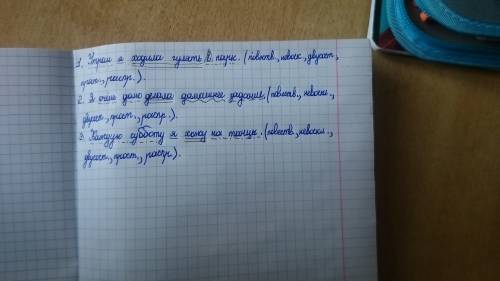 1. Утром я ходила гулять в парк. (повеств., невоск., двусост.,
прост., распр.).
2. Я очень долго делала домашнее задание. (повеств., невоскл.,
двусост., прост., распр.).
3. Каждую субботу я хожу на танцы. (повеств., невоскл.,
двусост., прост., распр.).